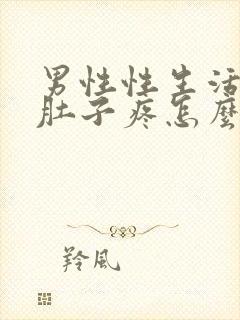 男性性生活
肚子疼怎麼
羚風